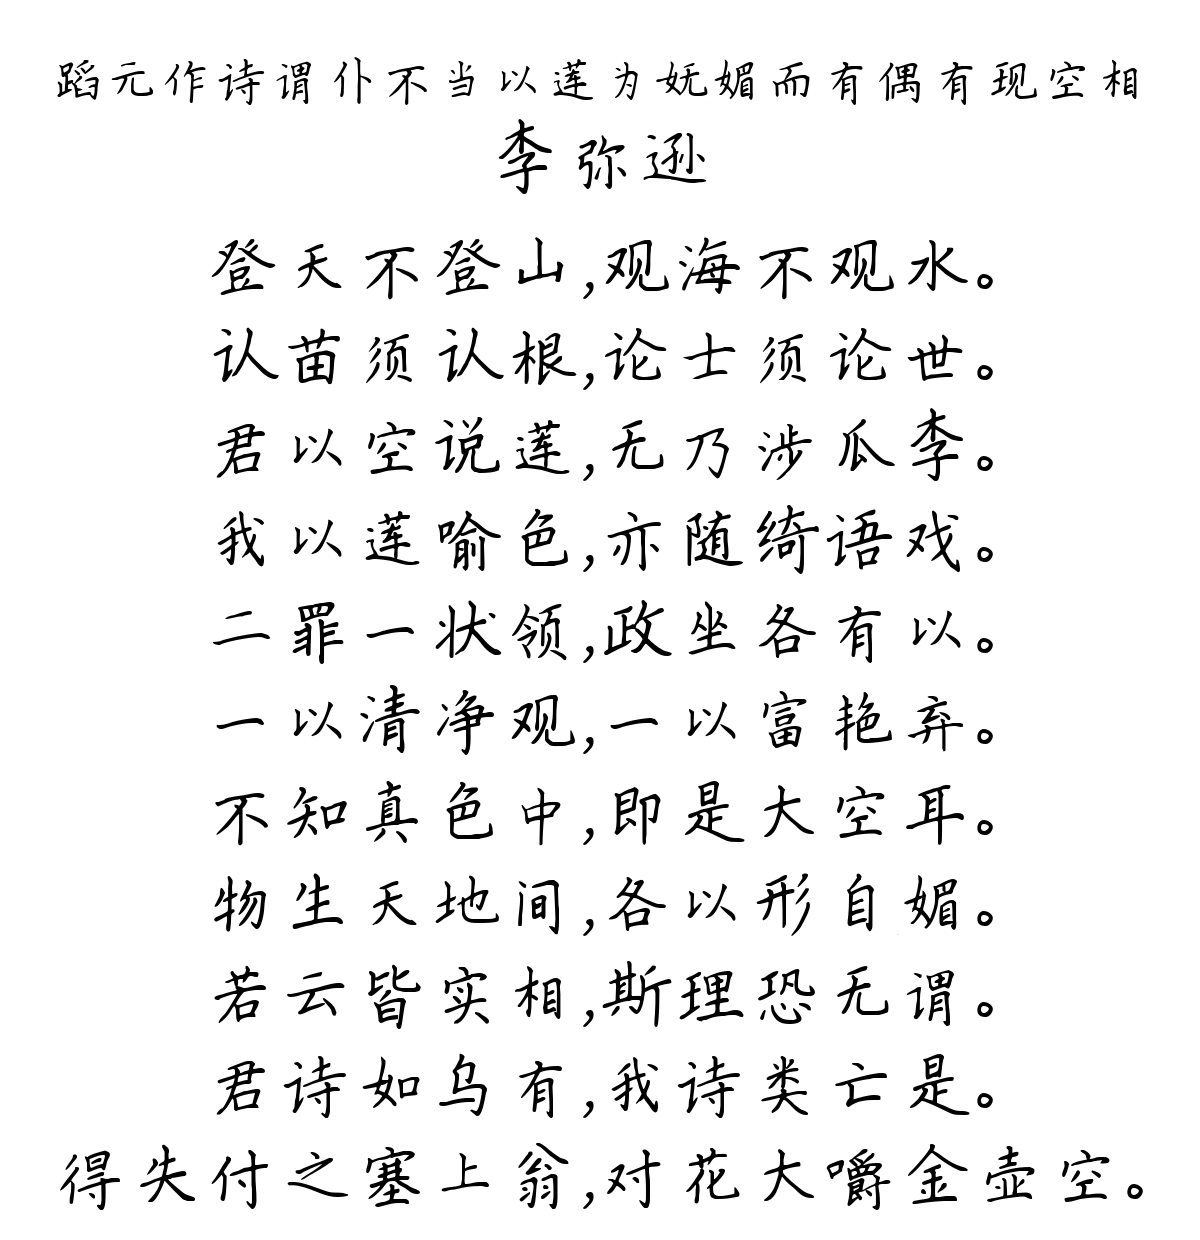 蹈元作诗谓仆不当以莲为妩媚而有偶有现空相
李弥逊
登天不登山,观海不观水。
认苗须认根,论士须论世。
君以空说莲,无乃涉瓜李。
我以莲喻色,亦随绮语戏。
二罪一状领,政坐各有以。
一以清净观,一以富艳弃。
不知真色中,即是大空耳。
物生天地间,各以形自媚。
若云皆实相,斯理恐无谓。
君诗如乌有,我诗类亡是。
得失付之塞上翁,对花大嚼金壶空。